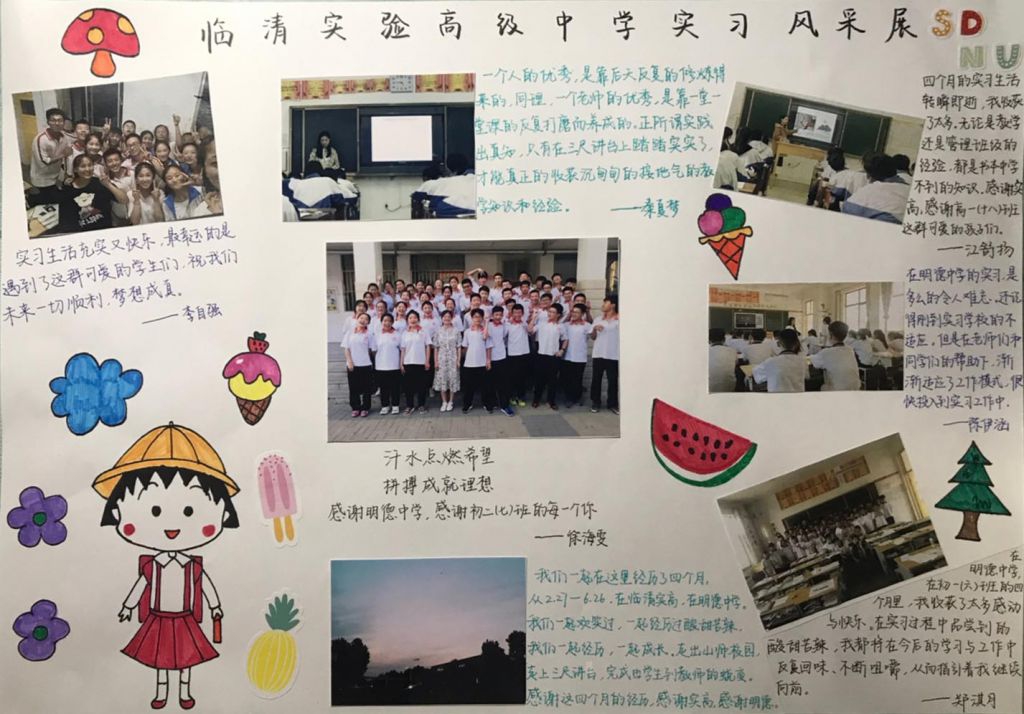 临清实验高级中学实习风采展
SD
NU
一个人的优秀,是靠后天反复的修炼得
来的,同理,一个老师的优秀,是靠一堂一
堂课的反复打磨而养成的。正所谓实践
出真知,只有在三尺讲台上踏踏实实了,
才能真正的收获沉甸甸的接地气的教
学知识和经验。 ——秦夏梦
四个月的实习生活
转瞬即逝,我收获
了太多,无论是教学
还是管理班级的
经验,都是书本中学
不到的知识,感谢实
高,感谢高一(十八)班
这群可爱的孩子们。
——江舒扬
实习生活充实又快乐,最幸运的是
遇到了这群可爱的学生们,祝我们
未来一切顺利,梦想成真。
——李自强
在明德中学的实习,是
多么的令人难忘,还记
得刚到实习学校的不
适应,但是在老师们和
同学们的帮助下,渐
渐适应了工作模式,很
快投入到实习工作中。
——陈伊涵
汗水点燃希望
拼搏成就理想
感谢明德中学,感谢初二(七)班的每一个你
——徐海雯
我们一起在这里经历了四个月,
从2.27—6.26,在临清实高,在明德中学。
我们一起欢笑过,一起经历过酸甜苦辣,
我们一起经历,一起成长,走出山师校园,
走上三尺讲台,完成由学生到教师的蜕变。
感谢这四个月的经历,感谢实高,感谢明德。
在
明德中学,
在初一(六)班的四
个月里,我收获了太多感动
与快乐。在实习过程中品尝到的
酸甜苦辣,我都将在今后的学习与工作中
反复回味、不断咀嚼,从而指引着我继续
向前。
——郑淇月